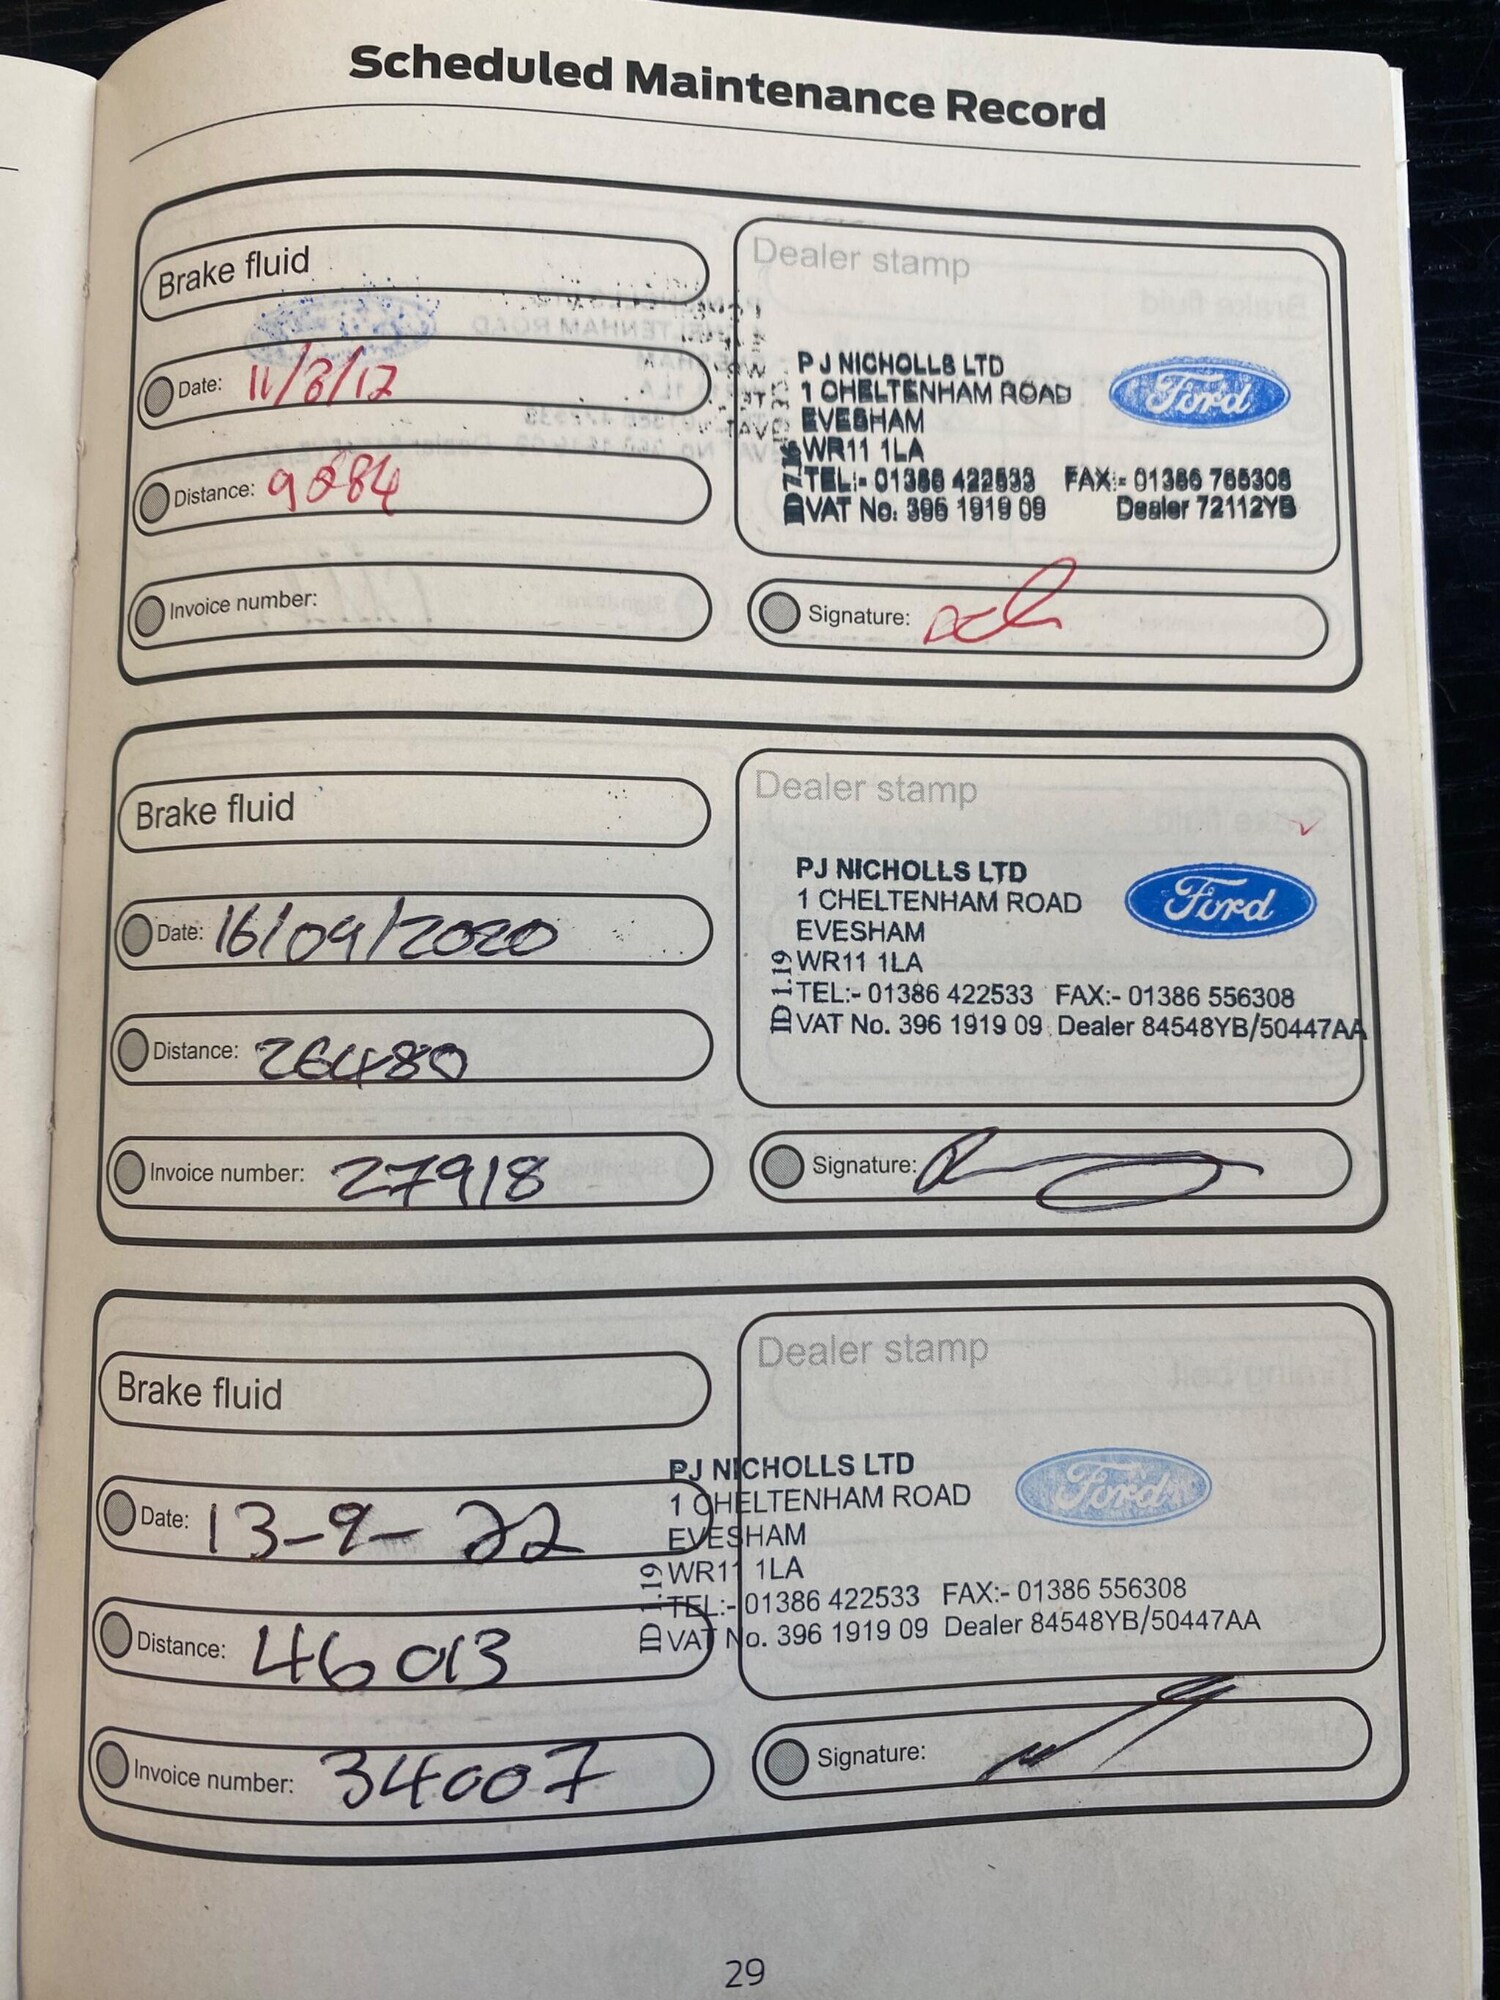 Scheduled Maintenance Record
Brake fluid
Date: 11/8/17
Distance: 9884
Invoice number:
Dealer stamp
P J NICHOLLS LTD
1 CHELTENHAM ROAD
EVESHAM
WR11 1LA
TEL:- 01386 422533 FAX:- 01386 765308
VAT No. 396 1919 09 Dealer 72112YB
Ford
Signature:
Brake fluid
Date: 16/09/2020
Distance: 26480
Invoice number: 27918
Dealer stamp
PJ NICHOLLS LTD
1 CHELTENHAM ROAD
EVESHAM
WR11 1LA
TEL:- 01386 422533 FAX:- 01386 556308
VAT No. 396 1919 09 Dealer 84548YB/50447AA
ID 1.19
Ford
Signature:
Brake fluid
Date: 13-9-22
Distance: 46013
Invoice number: 34007
Dealer stamp
PJ NICHOLLS LTD
1 CHELTENHAM ROAD
EVESHAM
WR11 1LA
TEL:- 01386 422533 FAX:- 01386 556308
VAT No. 396 1919 09 Dealer 84548YB/50447AA
ID 1.19
Ford
Signature:
29